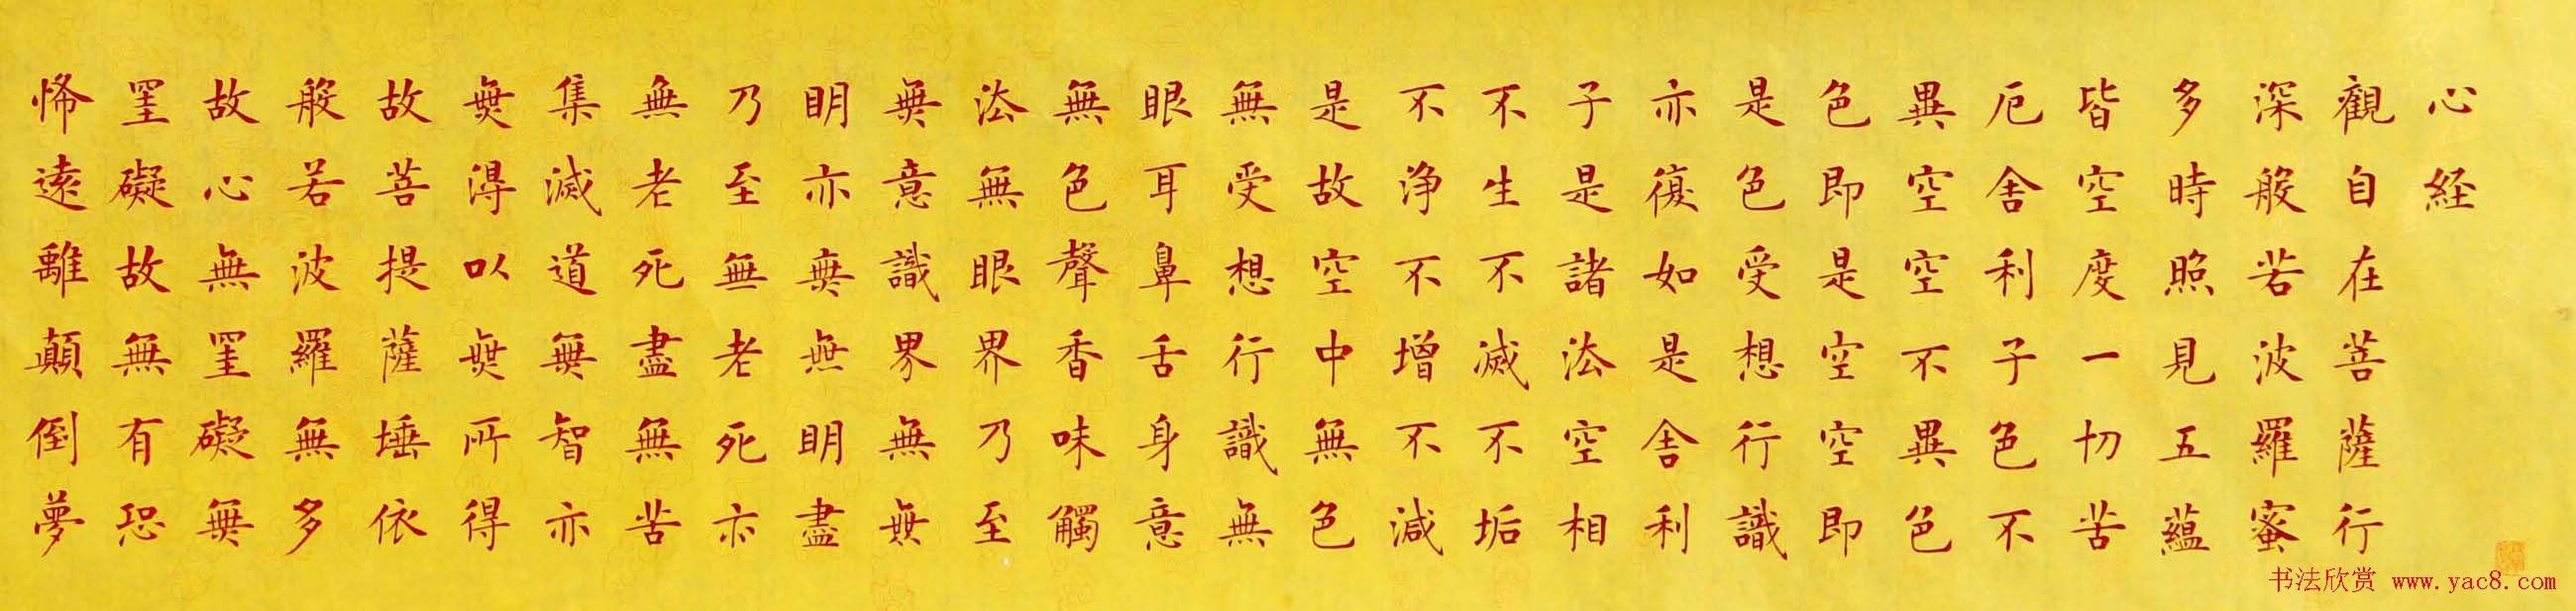 心経
觀自在菩薩行
深般若波羅蜜
多時照見五蘊
皆空度一切苦
厄舍利子色不
異空空不異色
色即是空空即
是色受想行識
亦復如是舍利
子是諸法空相
不生不滅不垢
不浄不增不減
是故空中無色
無受想行識無
眼耳鼻舌身意
無色聲香味觸
法無眼界乃至
無意識界無無
明亦無無明盡
乃至無老死亦
無老死盡無苦
集滅道無智亦
無得以無所得
故菩提薩埵依
般若波羅無多
故心無罣礙無
罣礙故無有恐
怖遠離顛倒夢
书法欣赏 www.yac8.com